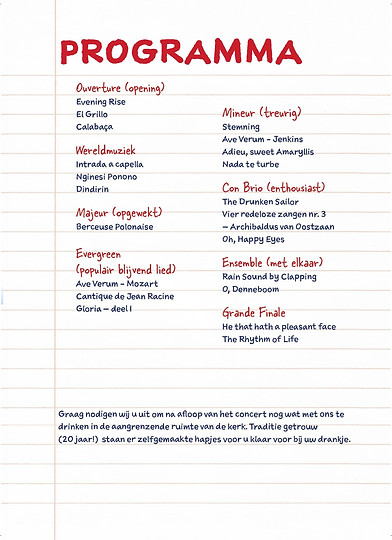 PROGRAMMA
Ouverture (opening)
Evening Rise
El Grillo
Calabaça
Wereldmuziek
Intrada a capella
Nginesi Ponono
Dindirin
Majeur (opgewekt)
Berceuse Polonaise
Evergreen
(populair blijvend lied)
Ave Verum - Mozart
Cantique de Jean Racine
Gloria – deel I
Mineur (treurig)
Stemning
Ave Verum - Jenkins
Adieu, sweet Amaryllis
Nada te turbe
Con Brio (enthousiast)
The Drunken Sailor
Vier redeloze zangen nr. 3
– Archibaldus van Oostzaan
Oh, Happy Eyes
Ensemble (met elkaar)
Rain Sound by Clapping
O, Denneboom
Grande Finale
He that hath a pleasant face
The Rhythm of Life
Graag nodigen wij u uit om na afloop van het concert nog wat met ons te
drinken in de aangrenzende ruimte van de kerk. Traditie getrouw
(20 jaar!) staan er zelfgemaakte hapjes voor u klaar voor bij uw drankje.